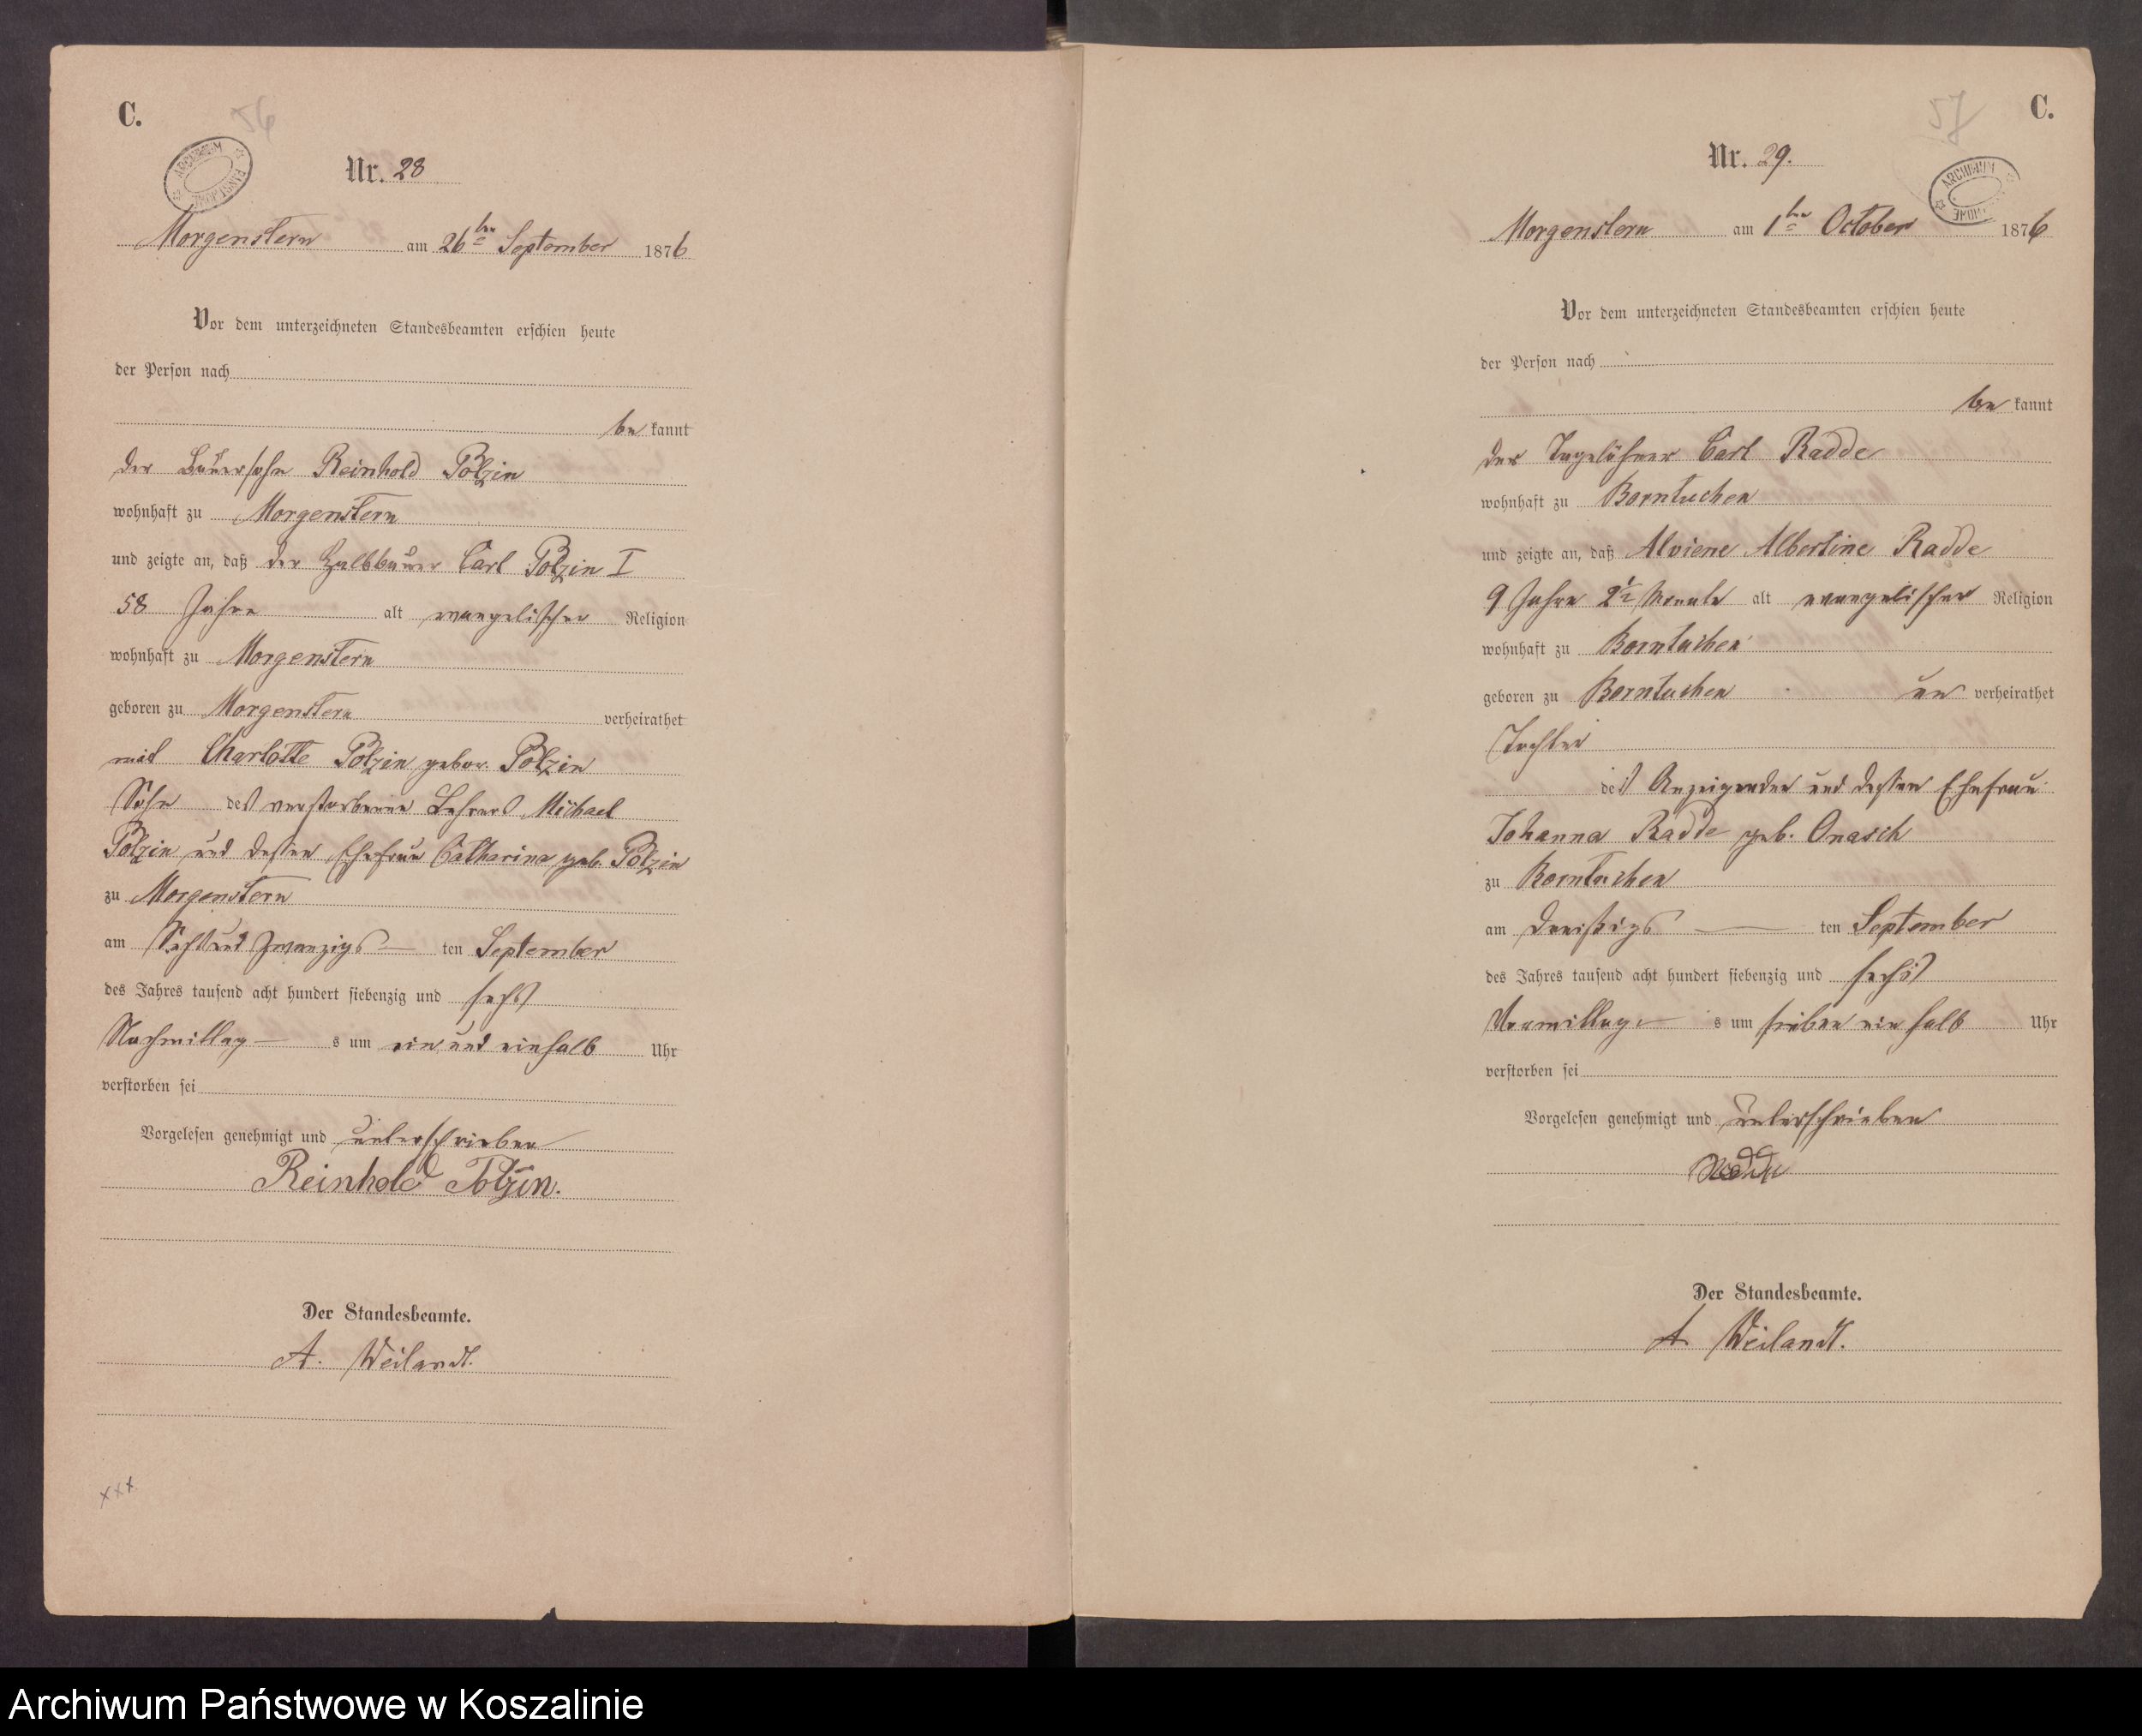 C.
56
ARCHIWUM PAŃSTWOWE
Nr. 28
Morgenstern am 26ten September 1876
Vor dem unterzeichneten Standesbeamten erschien heute
der Person nach
bekannt
der Bauersohn Reinhold Polzin
wohnhaft zu Morgenstern
und zeigte an, daß der Halbbauer Carl Polzin I
58 Jahre alt evangelischer Religion
wohnhaft zu Morgenstern
geboren zu Morgenstern verheirathet
mit Charlotte Polzin gebor. Polzin
Sohn des verstorbenen Lehrers Michael
Polzin und dessen Ehefrau Catharina geb. Polzin
zu Morgenstern
am Sechsundzwanzigsten September
des Jahres tausend acht hundert siebenzig und sechs
Nachmittags um ein und einhalb Uhr
verstorben sei
Vorgelesen genehmigt und unterschrieben
Reinhold Polzin.
Der Standesbeamte.
A. Weilandt.
xxx
57
C.
ARCHIWUM
Nr. 29.
Morgenstern am 1ten October 1876
Vor dem unterzeichneten Standesbeamten erschien heute
der Person nach
bekannt
der Tagelöhner Carl Radde
wohnhaft zu Borntuchen
und zeigte an, daß Alviene Albertine Radde
9 Jahre 2½ Monate alt evangelischer Religion
wohnhaft zu Borntuchen
geboren zu Borntuchen unverheirathet
Tochter
des Anzeigenden und dessen Ehefrau
Johanna Radde geb. Onasch
zu Borntuchen
am dreißigsten September
des Jahres tausend acht hundert siebenzig und sechs
Vormittags um sieben ein halb Uhr
verstorben sei
Vorgelesen genehmigt und unterschrieben
Radde
Der Standesbeamte.
A Weilandt.
Archiwum Państwowe w Koszalinie